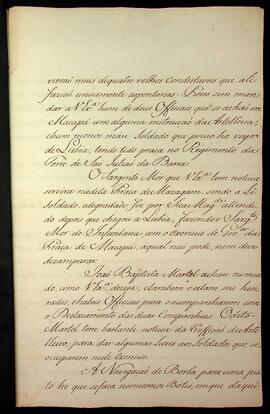 viessem mais de quatro velhos condestaveis que ali
faziaõ unicamente espontarias: Posso sem man
dar a V. Exa. hum de dous Officiaes, que se achaõ em
Macapá com alguma instrucçaõ da Artelharia;
e hum menos máu Soldado que pouco ha veyo
de Lisboa, tendo tido praça no Regimento da
Torre de Saõ Juliaõ da Barra.
O Sargento Mor que V. Exa. tem noticia
servira na dita Praça de Mazagam, sendo a Li
Soldado, degradado foi por Sua Mage. attende
do depois que chegou a Lisboa, fazendo-o Sargto.
Mor de Infantaria com o exercicio de Govor. da
Praça de Macapá, a qual naõ póde, nem deve
dezamparar.
Joaõ Baptista Martel achase nomea
do como V. Exa. dezeja, e tambem o estam seus hon
rados, e habeis Officiaes para o acompanharem com
o Destacamento das duas Companhias: O dito
Martel tem bastante noticia da Profissaõ de Arte
lheiro, para dar algumas luzes aos Soldados que se
occuparem neste Exercicio.
A Navegaçaõ de Borba para cima, jus
to he que se faça nos mesmos Botes, em que daqui